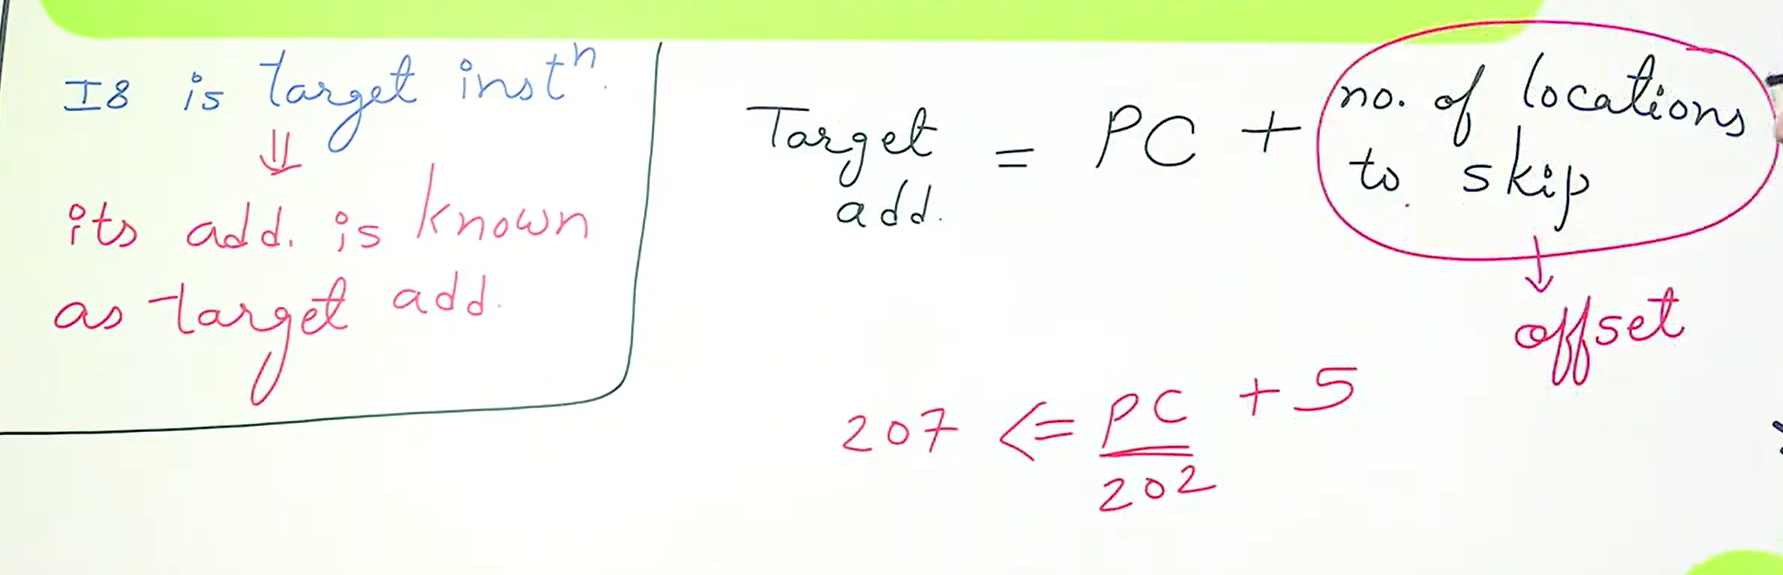 I8 is target instⁿ.
⇓
its add. is known
as target add.
Target add. = PC + no. of locations to skip
↓
offset
207 <= PC + 5
202